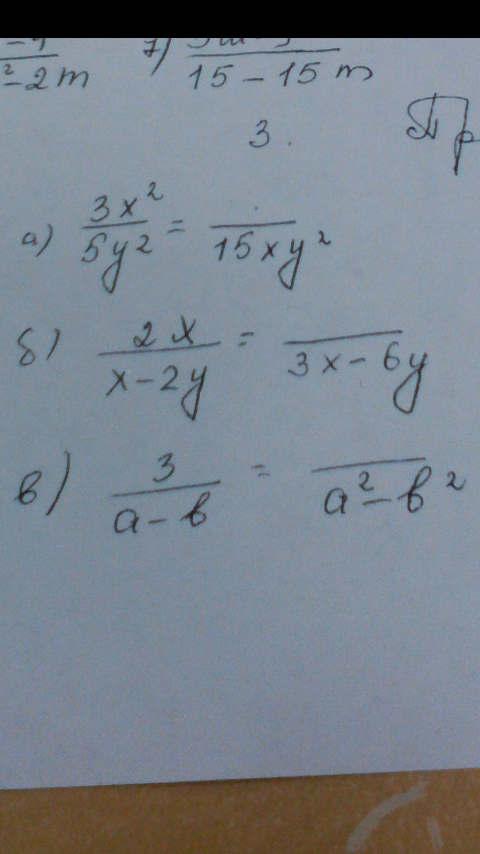 ²-2m 7) 15-15m
3. Пр
а) 3x²/5y² = /15xy²
б) 2x/x-2y = /3x-6y
в) 3/a-b = /a²-b²